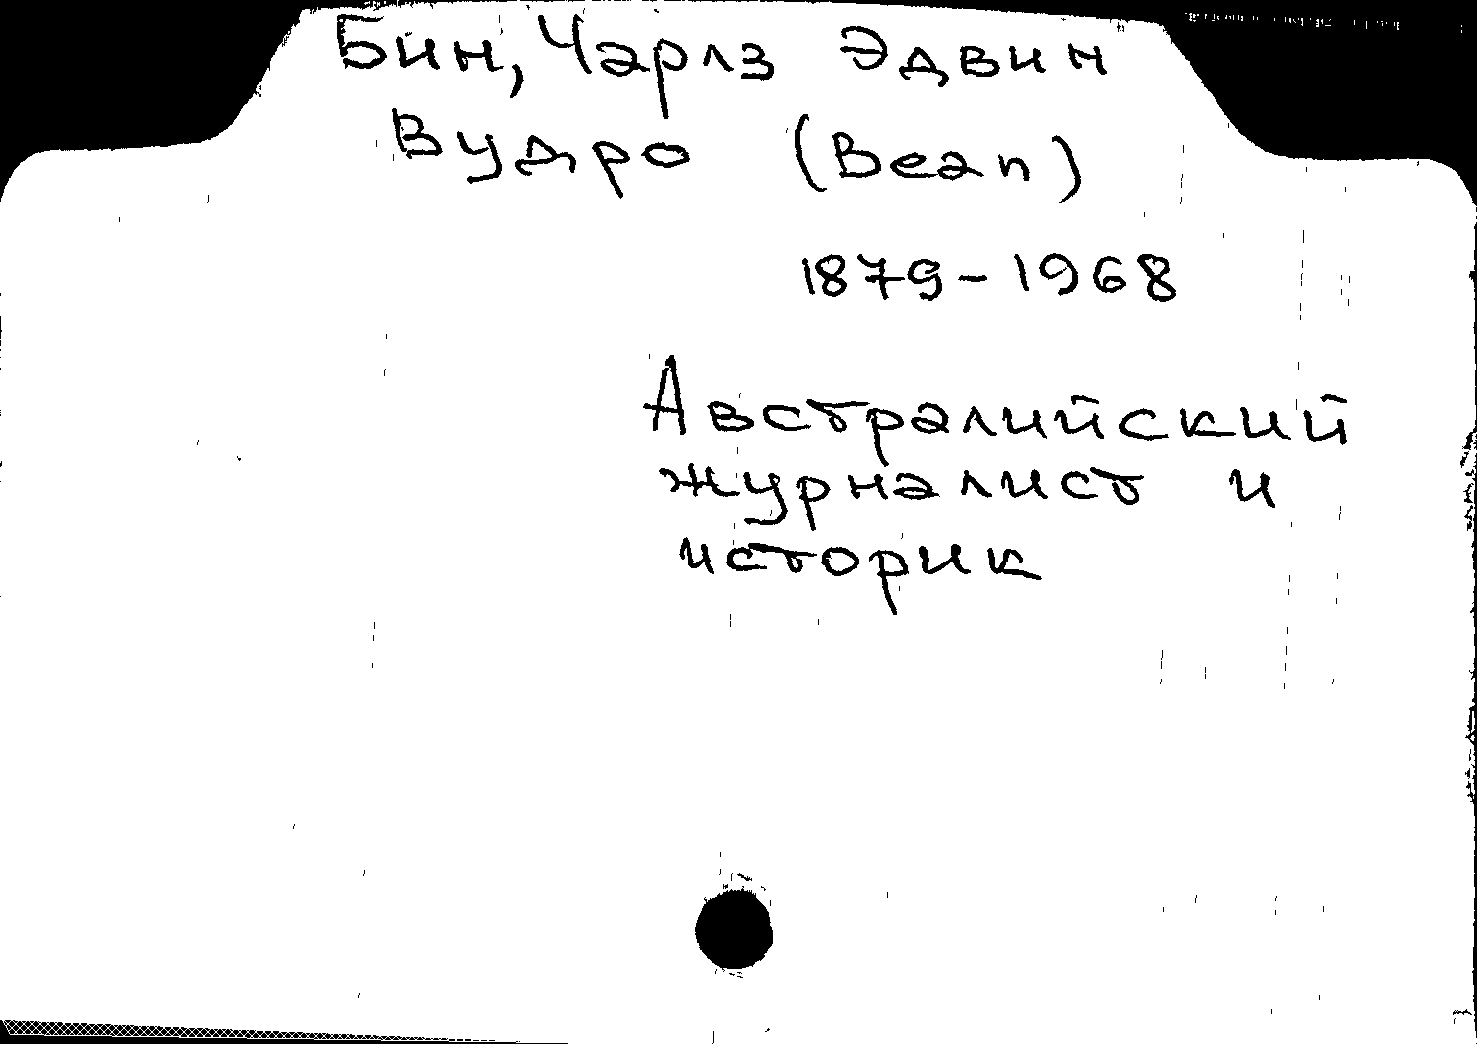 Бин, Чарлз Эдвин
Вудро (Bean)
1879-1968
Австралийский
журналист и
историк